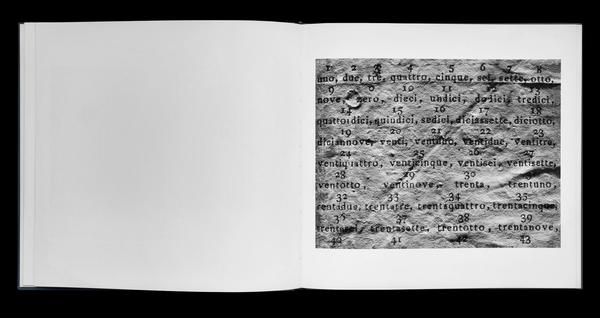 1 2 3 4 5 6 7 8
uno, due, tre, quattro, cinque, sei, sette, otto,
9 0 10 11 12 13
nove, zero, dieci, undici, dodici, tredici,
14 15 16 17 18
quattordici, quindici, sedici, diciassette, diciotto,
19 20 21 22 23
diciannove, venti, ventuno, ventidue, ventitre,
24 25 26 27
ventiquattro, venticinque, ventisei, ventisette,
28 29 30
ventotto, ventinove, trenta, trentuno,
32 33 34 35
rentadue, trentatre, trentaquattro, trentacinque,
36 37 38 39
trentasei, trentasette, trentotto, trentanove,
40 41 42 43